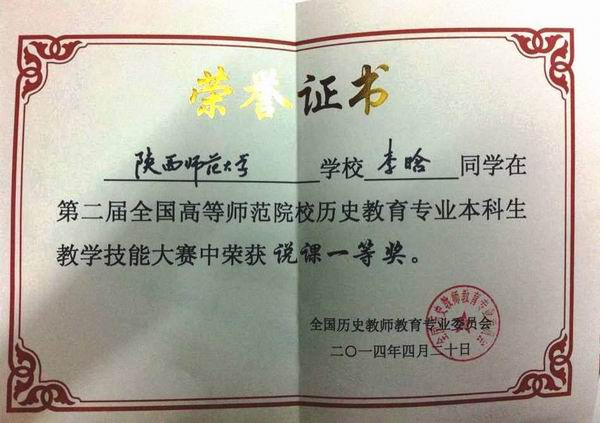 荣誉证书
陕西师范大学学校李晗同学在
第二届全国高等师范院校历史教育专业本科生
教学技能大赛中荣获说课一等奖。
全国历史教师教育专业委员会
二〇一四年四月二十日